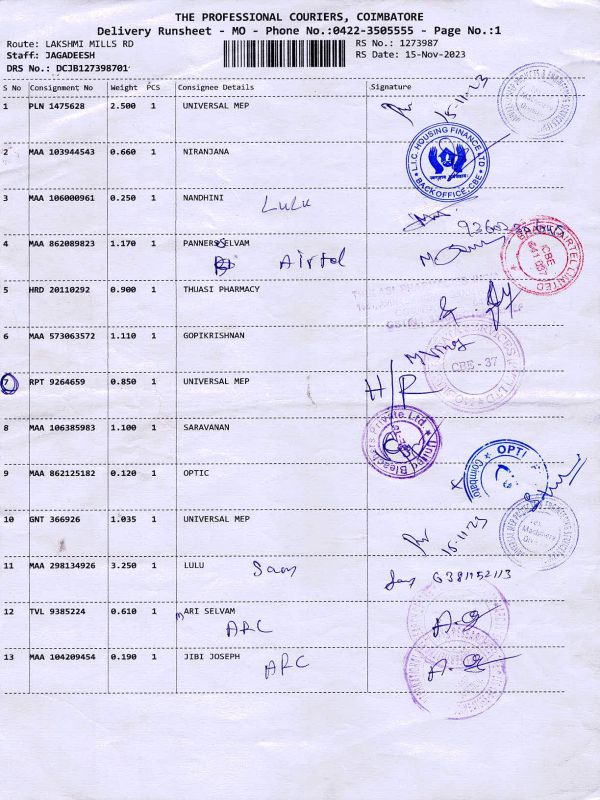 THE PROFESSIONAL COURIERS, COIMBATORE
Delivery Runsheet - MO - Phone No.:0422-3505555 - Page No.:1
Route: LAKSHMI MILLS RD RS No.: 1273987
Staff: JAGADEESH RS Date: 15-Nov-2023
DRS No.: DCJB127398701
S No Consignment No Weight PCS Consignee Details Signature
1 PLN 1475628 2.500 1 UNIVERSAL MEP 15-11-23
2 MAA 103944543 0.660 1 NIRANJANA
L.I.C. HOUSING FINANCE LTD
BACK OFFICE, CBE
3 MAA 106000961 0.250 1 NANDHINI LULU
4 MAA 862089823 1.170 1 PANNERSELVAM
Airtel
AIRTEL LIMITED
CBE
5 HRD 20110292 0.900 1 THUASI PHARMACY
6 MAA 573063572 1.110 1 GOPIKRISHNAN
CBE - 37
7 RPT 9264659 0.850 1 UNIVERSAL MEP H/R
8 MAA 106385983 1.100 1 SARAVANAN
United Bleachers Private Ltd.
9 MAA 862125182 0.120 1 OPTIC
OPTI
10 GNT 366926 1.035 1 UNIVERSAL MEP 15-11-23
Tex
Machinery
11 MAA 298134926 3.250 1 LULU
12 TVL 9385224 0.610 1 ARI SELVAM
ARC
13 MAA 104209454 0.190 1 JIBI JOSEPH ARC